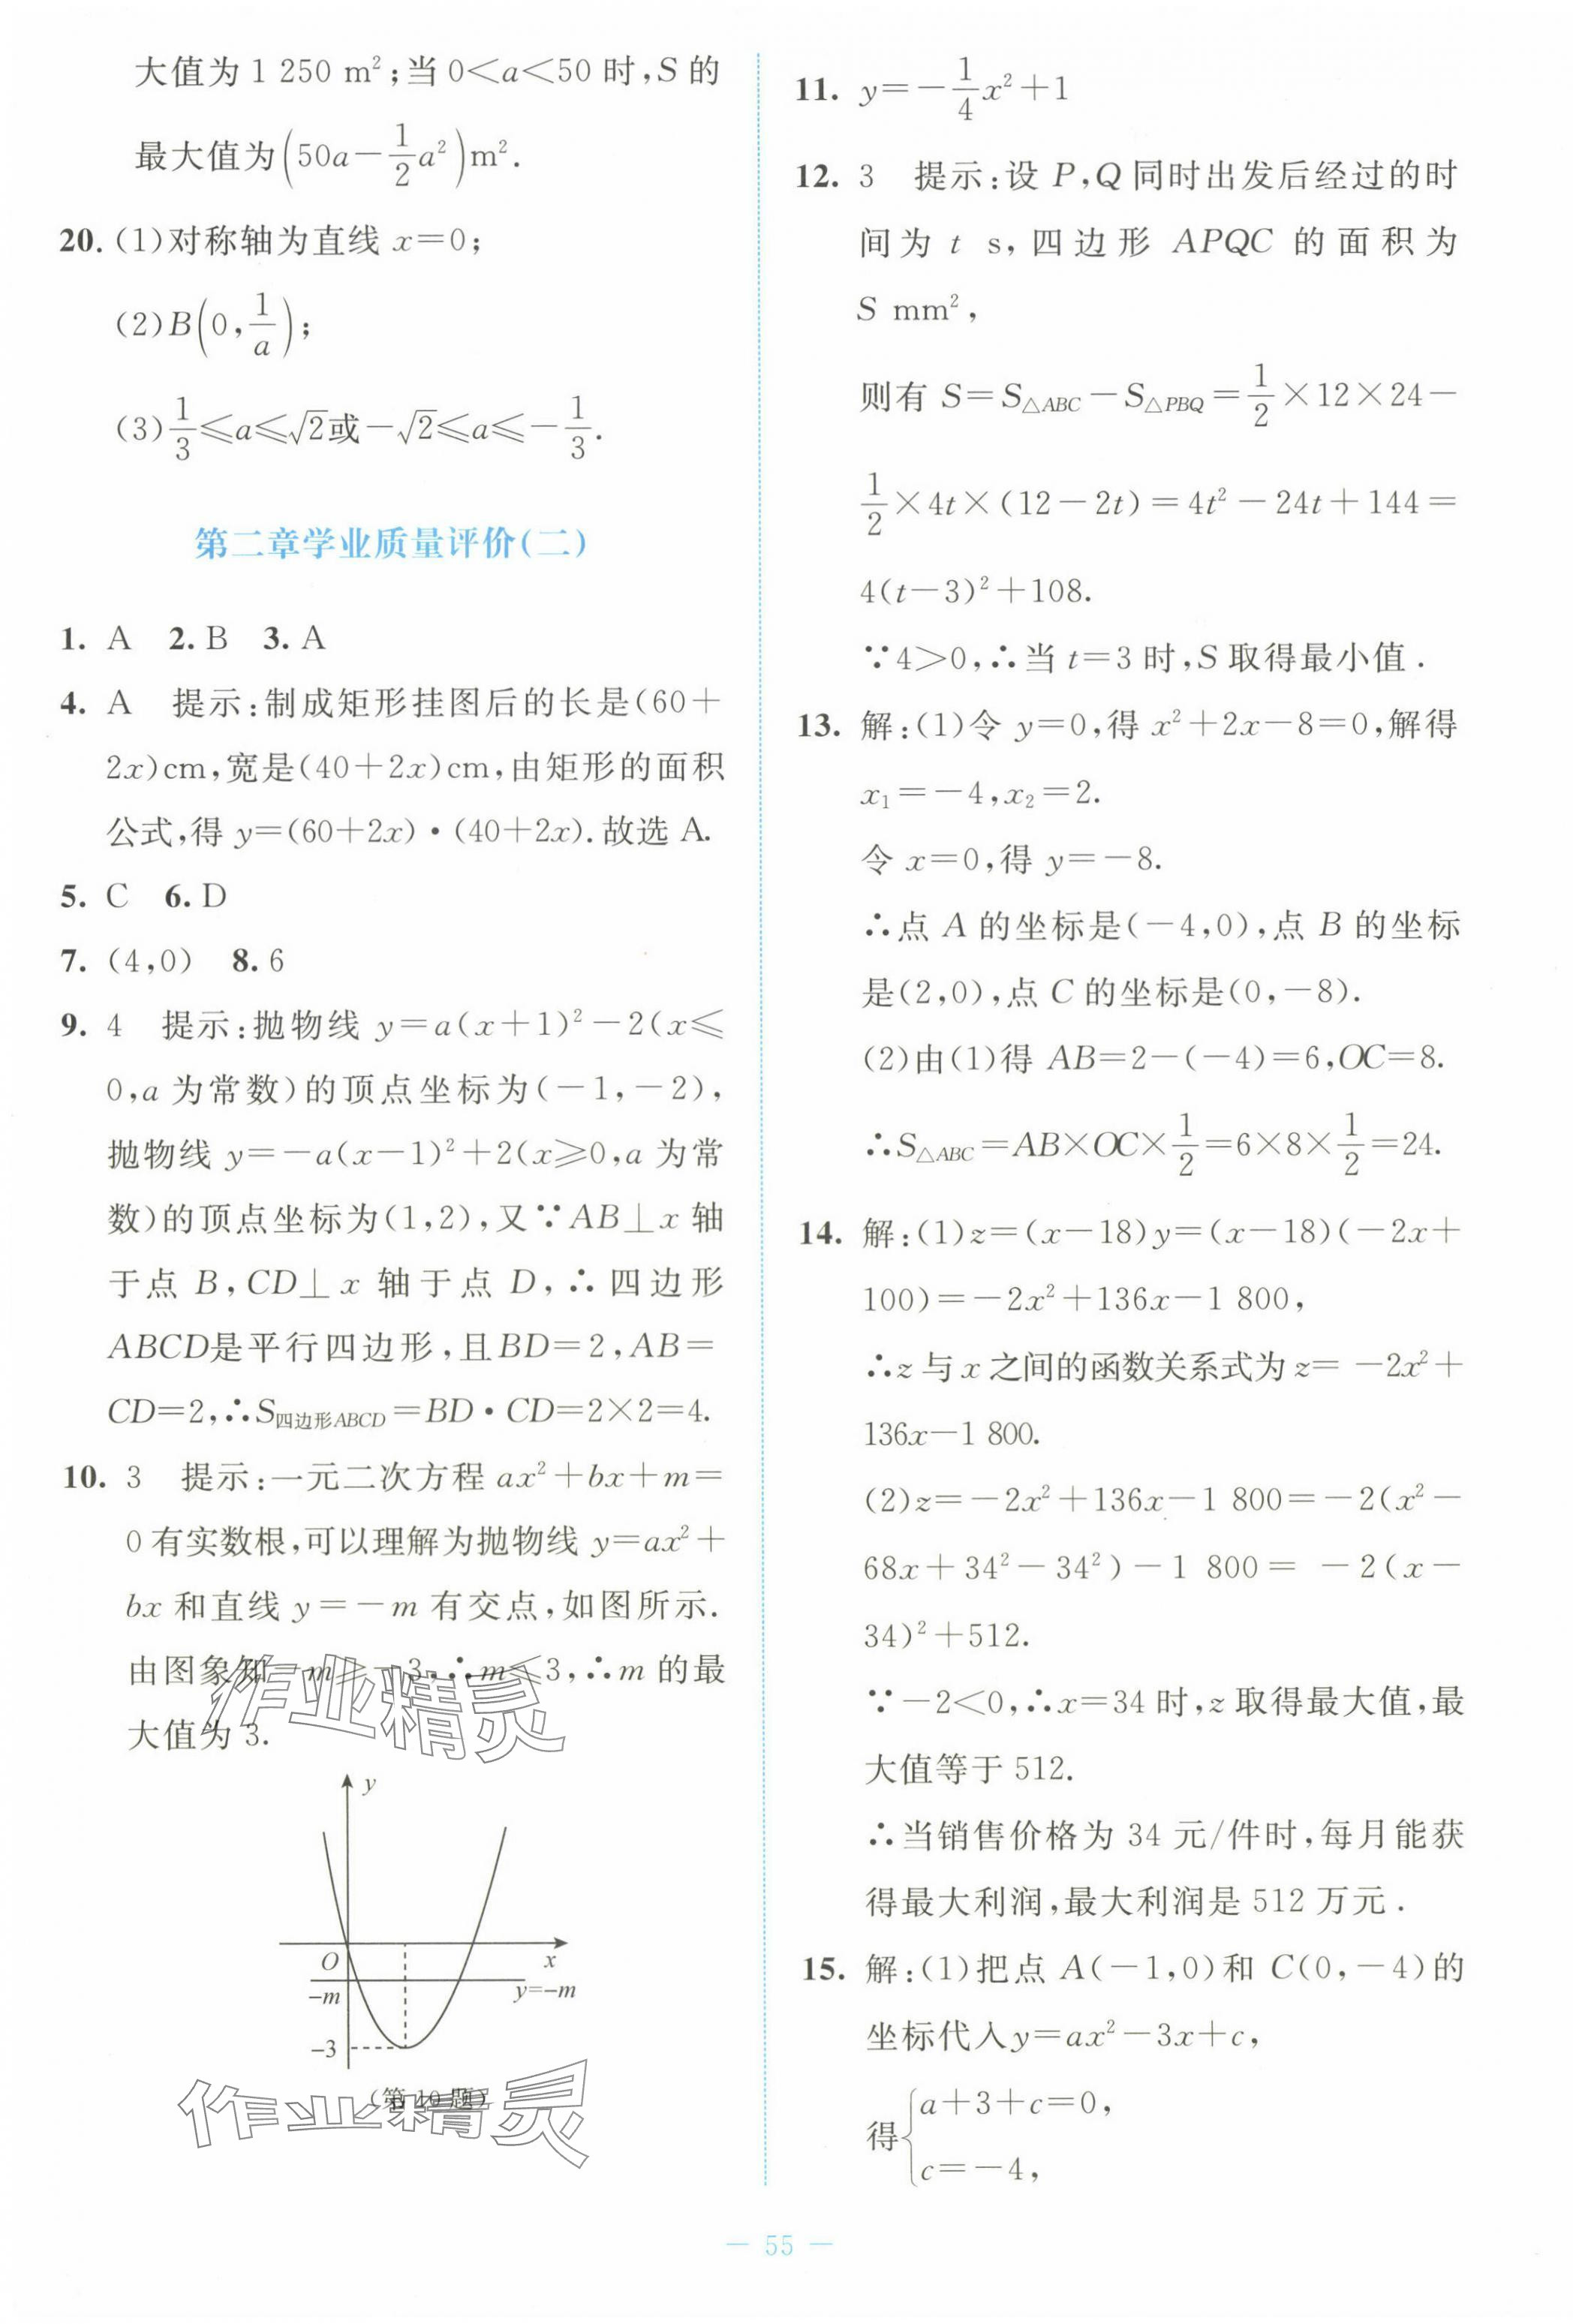 大值为 1 250 m²;当 0<a<50 时,S 的
最大值为(50a－1/2a²)m².
20. (1)对称轴为直线 x＝0;
(2)B(0,1/a);
(3)1/3≤a≤√2或－√2≤a≤－1/3.
第二章学业质量评价(二)
1. A　2. B　3. A
4. A　提示:制成矩形挂图后的长是(60＋
2x)cm,宽是(40＋2x)cm,由矩形的面积
公式,得 y＝(60＋2x)·(40＋2x).故选 A.
5. C　6. D
7. (4,0)　8. 6
9. 4　提示:抛物线 y＝a(x＋1)²－2(x≤
0,a 为常数)的顶点坐标为(－1,－2),
抛物线 y＝－a(x－1)²＋2(x≥0,a 为常
数)的顶点坐标为(1,2),又∵AB⊥x 轴
于点 B,CD⊥x 轴于点 D,∴四边形
ABCD是平行四边形,且BD＝2,AB＝
CD＝2,∴S四边形ABCD＝BD·CD＝2×2＝4.
10. 3　提示:一元二次方程 ax²＋bx＋m＝
0 有实数根,可以理解为抛物线 y＝ax²＋
bx 和直线 y＝－m 有交点,如图所示.
由图象知－m≥－3,∴m≤3,∴m 的最
大值为 3.
作业精灵
y
O
x
－m
y=－m
－3
(第 10 题)
作业精灵
11. y＝－1/4x²＋1
12. 3　提示:设 P,Q 同时出发后经过的时
间为 t s,四边形 APQC 的面积为
S mm²,
则有 S＝S△ABC－S△PBQ＝1/2×12×24－
1/2×4t×(12－2t)＝4t²－24t＋144＝
4(t－3)²＋108.
∵4>0,∴当 t＝3 时,S 取得最小值.
13. 解:(1)令 y＝0,得 x²＋2x－8＝0,解得
x₁＝－4,x₂＝2.
令 x＝0,得 y＝－8.
∴点 A 的坐标是(－4,0),点 B 的坐标
是(2,0),点 C 的坐标是(0,－8).
(2)由(1)得 AB＝2－(－4)＝6,OC＝8.
∴S△ABC＝AB×OC×1/2＝6×8×1/2＝24.
14. 解:(1)z＝(x－18)y＝(x－18)(－2x＋
100)＝－2x²＋136x－1 800,
∴z 与 x 之间的函数关系式为 z＝－2x²＋
136x－1 800.
(2)z＝－2x²＋136x－1 800＝－2(x²－
68x＋34²－34²)－1 800＝－2(x－
34)²＋512.
∵－2<0,∴x＝34 时,z 取得最大值,最
大值等于 512.
∴当销售价格为 34 元/件时,每月能获
得最大利润,最大利润是 512 万元.
15. 解:(1)把点 A(－1,0)和 C(0,－4)的
坐标代入y＝ax²－3x＋c,
得{a＋3＋c＝0,
c＝－4,
— 55 —